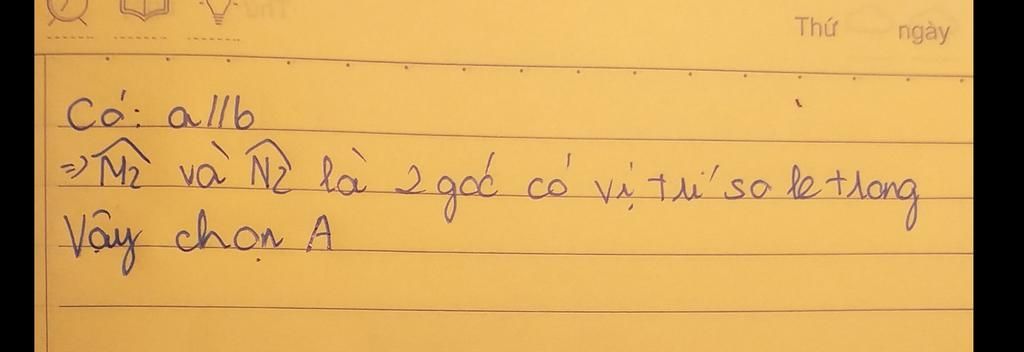 Thứ ngày
Có: a//b
=> M̂2 và N̂2 là 2 góc có vị trí so le trong
Vậy chọn A